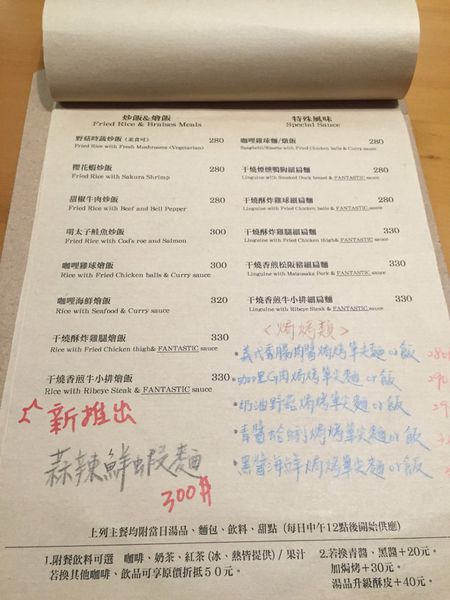 炒飯&燴飯
Fried Rice & Braises Meals
野菇時蔬炒飯 (素食可) 280
Fried Rice with Fresh Mushrooms (Vegetarian)
櫻花蝦炒飯 280
Fried Rice with Sakura Shrimp
甜椒牛肉炒飯 280
Fried Rice with Beef and Bell Pepper
明太子鮭魚炒飯 300
Fried Rice with Cod's roe and Salmon
咖哩雞球燴飯 300
Rice with Fried Chicken balls & Curry sauce
咖哩海鮮燴飯 320
Rice with Seafood & Curry sauce
干燒酥炸雞腿燴飯 330
Rice with Fried Chicken thigh& FANTASTIC sauce
干燒香煎牛小排燴飯
Rice with Ribeye Steak & FANTASTIC sauce
新推出
蒜辣鮮蝦麵
300元
特殊風味
Special Sauce
咖哩雞球麵/燉飯 280
Spaghetti/Risotto with Fried Chicken balls & Curry sauce
干燒煙燻鴨胸細扁麵 280
Linguine with Smoked Duck breast & FANTASTIC sauce
干燒酥炸雞球細扁麵 280
Linguine with Fried Chicken balls & FANTASTIC sauce
干燒酥炸雞腿細扁麵 330
Linguine with Fried Chicken thigh& FANTASTIC sauce
干燒香煎松阪豬細扁麵 330
Linguine with Matsusaka Pork & FANTASTIC sauce
干燒香煎牛小排細扁麵 330
Linguine with Ribeye Steak & FANTASTIC sauce
<焗烤類>
•義式香腸肉醬焗烤筆尖麵or飯 280
•咖哩G肉焗烤筆尖麵or飯 290
•奶油野菇焗烤筆尖麵or飯
•青醬蛤蜊焗烤筆尖麵or飯
•黑醬海鮮焗烤筆尖麵or飯
上列主餐均附當日湯品、麵包、飲料、甜點 (每日中午12點後開始供應)
1.附餐飲料可選 咖啡、奶茶、紅茶 (冰、熱皆提供) / 果汁
若換其他咖啡、飲品可享原價折抵50元。
2.若換青醬、黑醬+20元。
加焗烤+30元。
湯品升級酥皮+40元。